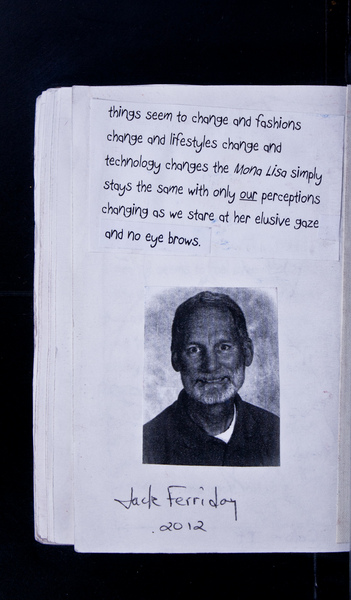 things seem to change and fashions
change and lifestyles change and
technology changes the Mona Lisa simply
stays the same with only our perceptions
changing as we stare at her elusive gaze
and no eye brows.
Jack Ferriday
.2012